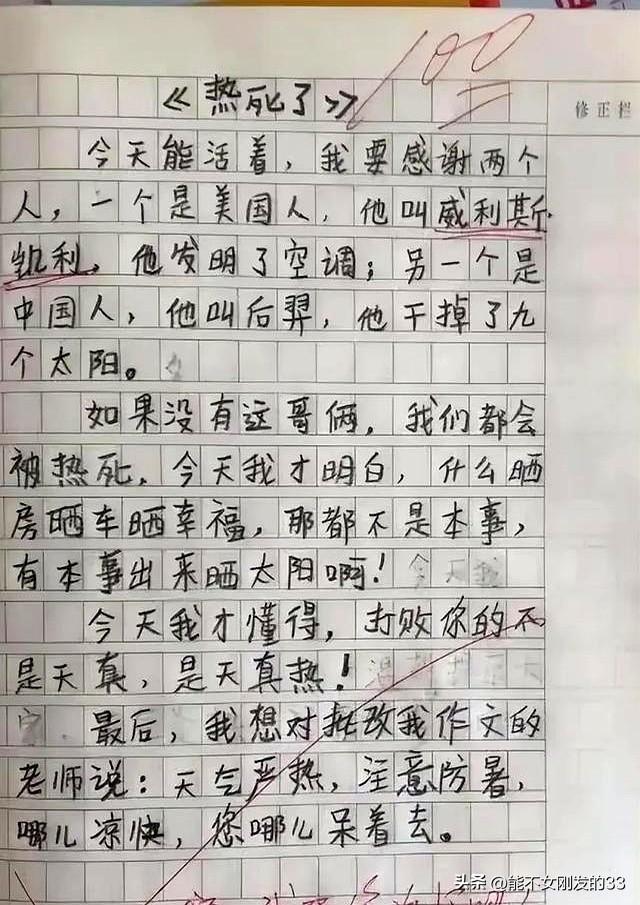 100
《热死了》
修正栏
今天能活着，我要感谢两个
人，一个是美国人，他叫威利斯
凯利，他发明了空调；另一个是
中国人，他叫后羿，他干掉了九
个太阳。
如果没有这哥俩，我们都会
被热死，今天我才明白，什么晒
房晒车晒幸福，那都不是本事，
有本事出来晒太阳啊！今天我
今天我才懂得，打败你的不
是天真，是天真热！
最后，我想对批改我作文的
老师说：天气严热，注意防暑，
哪儿凉快，您哪儿呆着去。
头条 @能不女刚发的33